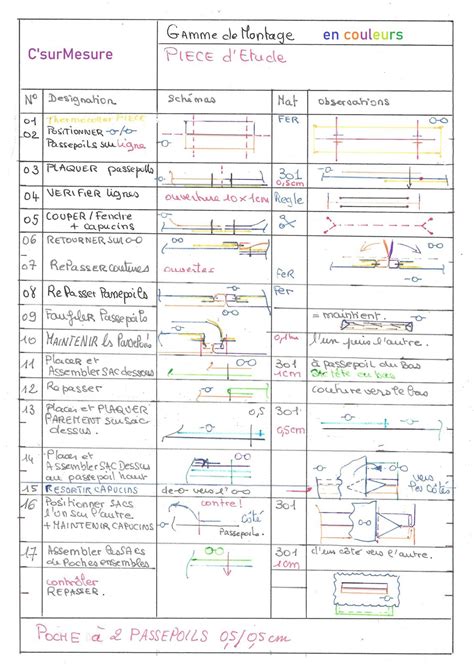 Gamme de Montage en couleurs
C'surMesure
PIECE d'Etude
N° Designation Schémas Mat observations
01 Thermocoller PIECE FER
02 POSITIONNER
Passepoils sur ligne
03 PLAQUER passepoils 301
0,5cm
04 VERIFIER lignes ouverture 10x1cm Regle
05 COUPER/fendre
+ capucins
06 RETOURNER sur o-o
07 Repasser coutures ouvertes FeR
08 Repasser Passepoils Fer
09 Faufiler Passepoils = maintient.
10 MAINTENIR les l'un puis l'autre.
11 Placer et 301 à passepoil du bas
Assembler SAC dessous 1cm
12 Repasser couture vers le bas
13 Placer et PLAQUER 0,5 301
PAREMENT sur sac 0,5cm
dessus.
14 Placer et
Assembler SAC DESSUS vers
au passepoil haut les côtés
15 RESSORTIR CAPUCINS de-o vers l'o-o
16 Positionner SACS contre! 301
l'un sur l'autre côté
+ MAINTENIR CAPUCINS Passepoils.
17 Assembler les SACS 301 d'un côté vers l'autre.
de Poches ensembles. 1cm
contrôler
REPASSER.
POCHE à 2 PASSEPOILS 0,5/0,5cm